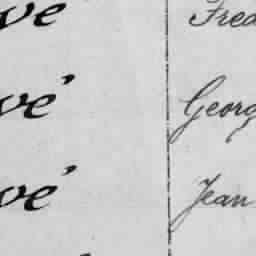 vé Fred
vé Georg
vé Jean